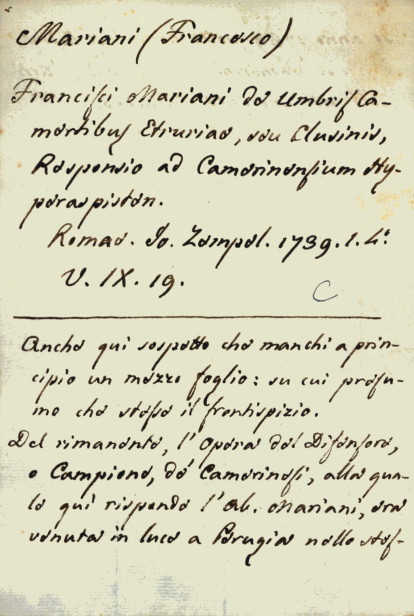 Mariani (Francesco)
Francisci Mariani de Umbris Ca-
mertibus Etruriae, seu Clusinis,
Responsio ad Camerinensium Hy-
peraspisten.
Romae. Io. Zempel. 1739. 1. 4.°
V. IX. 19.
C
Anche qui sospetto che manchi a prin-
cipio un mezzo foglio: su cui presu-
mo che stesse il frontispizio.
Del rimanente, l'Opera del Difensore,
o Campione, de' Camerinesi, alla qua-
le qui risponde l'Ab. Mariani, era
venuta in luce a Perugia nello stes-